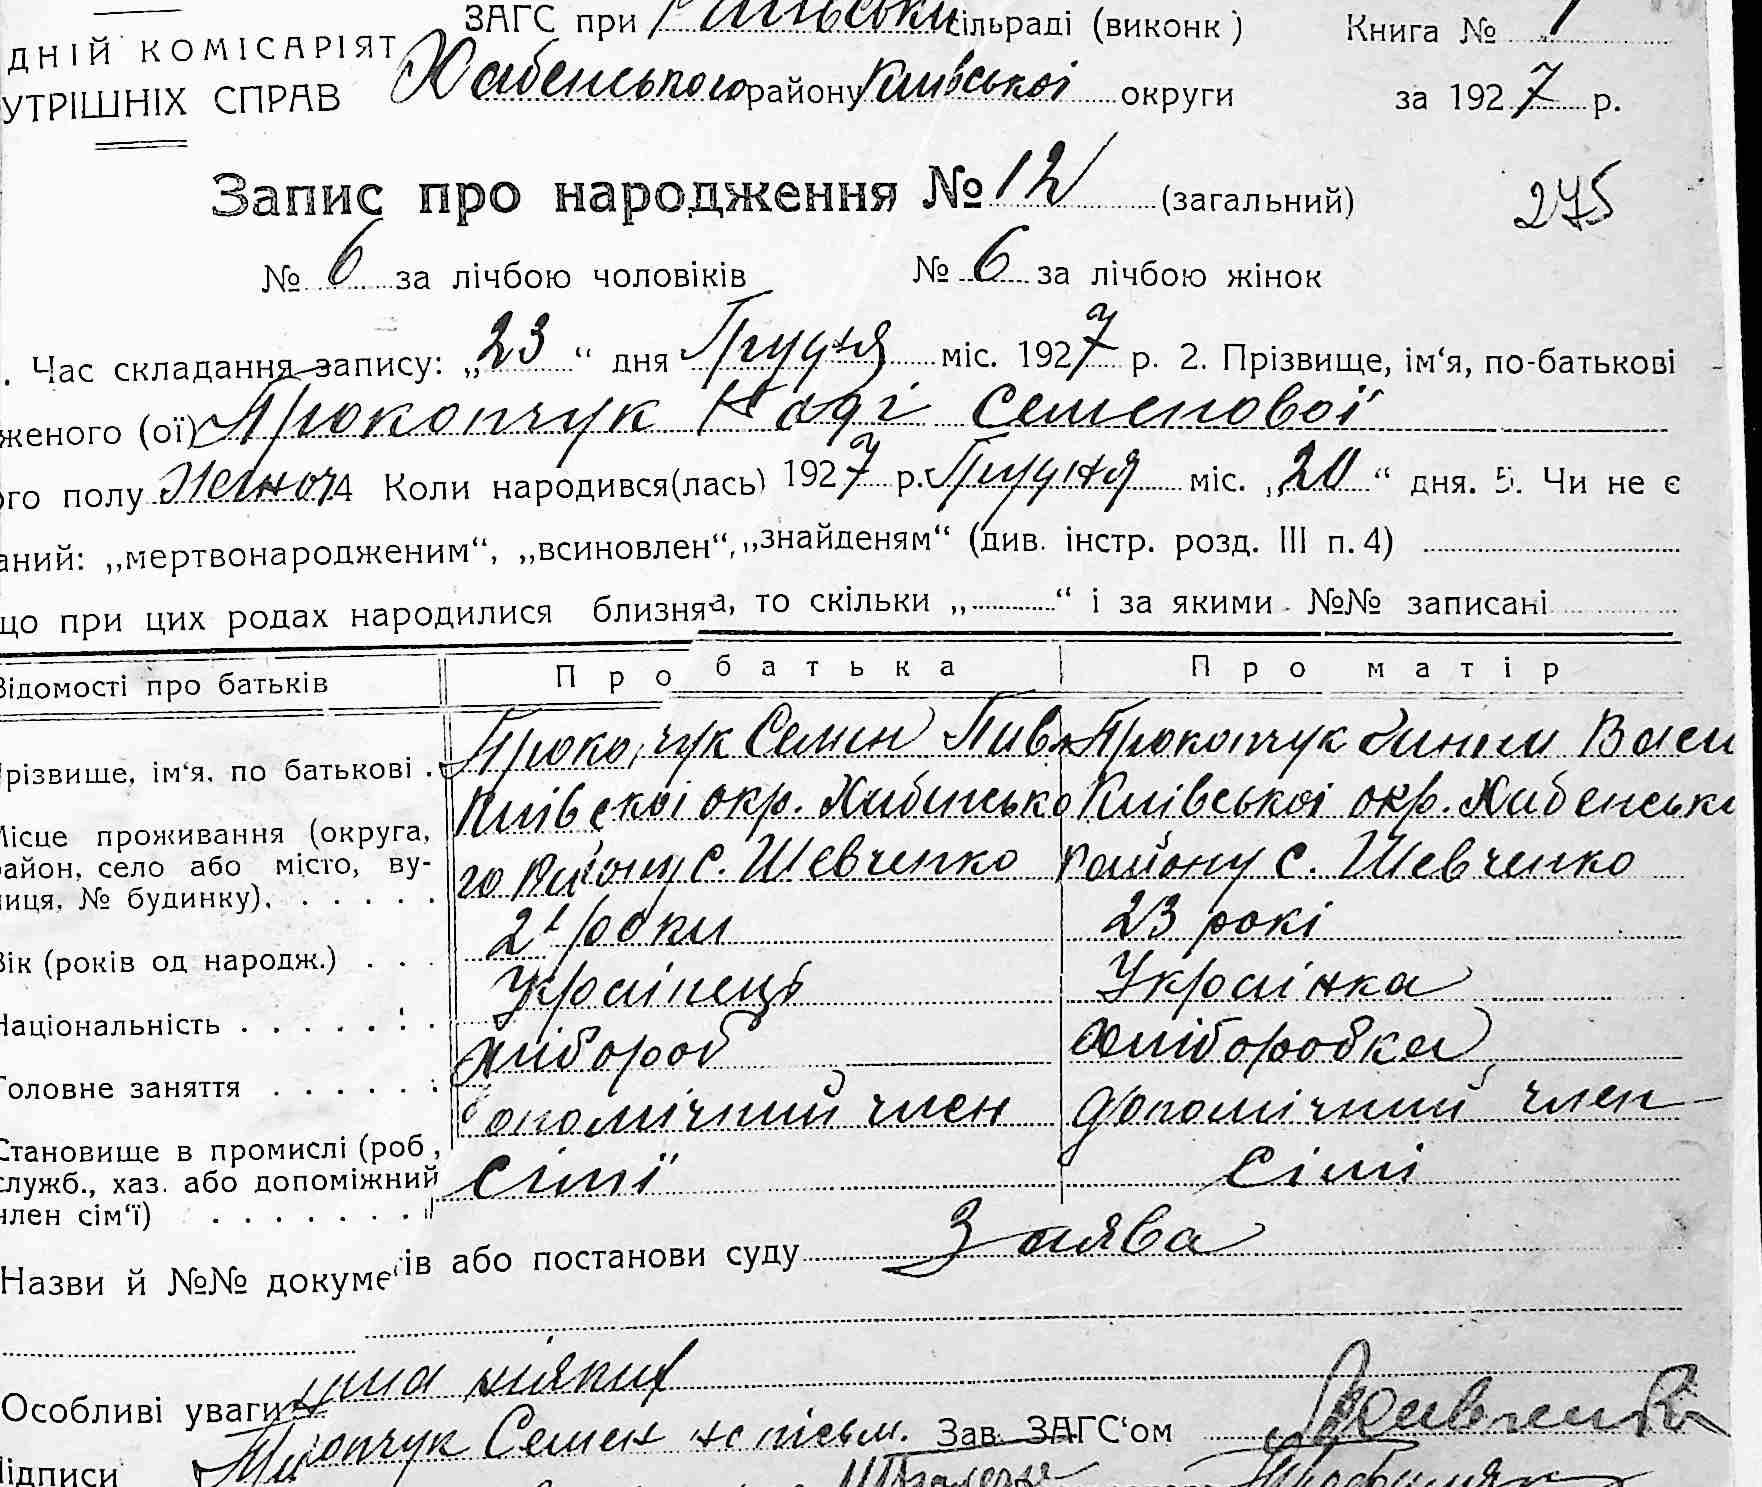 ЗАГС при сільраді (виконк) Книга № 1
ДНІЙ КОМІСАРІЯТ
УТРІШНІХ СПРАВ Хабенського району Київської округи за 1927 р.
Запис про народження № 12 (загальний) 275
№ 6 за лічбою чоловіків № 6 за лічбою жінок
. Час складання запису: „23“ дня Грудня міс. 1927 р. 2. Прізвище, ім‘я, по-батькові
женого (ої) Прокопчук Наді Семенової
ого полу Жіноч 4 Коли народився(лась) 1927 р. Грудня міс. „20“ дня. 5. Чи не є
аний: „мертвонародженим“, „всиновлен“, „знайденям“ (див. інстр. розд. III п. 4)
що при цих родах народилися близнята, то скільки „ “ і за якими №№ записані
Відомості про батьків Про батька Про матір
Прізвище, ім‘я, по батькові . Прокопчук Семен Пав Прокопчук Ганна Васи
Місце проживання (округа, район, село або місто, вулиця, № будинку). Київскоі окр. Хабенсько Київськоі окр. Хабенсько
го Району с. Шевченко Району с. Шевченко
Вік (років од народж.) 21 роки 23 рокі
Національність Украінець Украінка
Головне заняття хлібороб хліборобка
Становище в промислі (роб, служб., хаз. або допоміжний член сім‘ї) допомічний член допомічний член
сімї сімі
Назви й №№ документів або постанови суду Заява
Особливі уваги ніяких
Підписи Прокопчук Семен не пісьм. Зав. ЗАГС‘ом